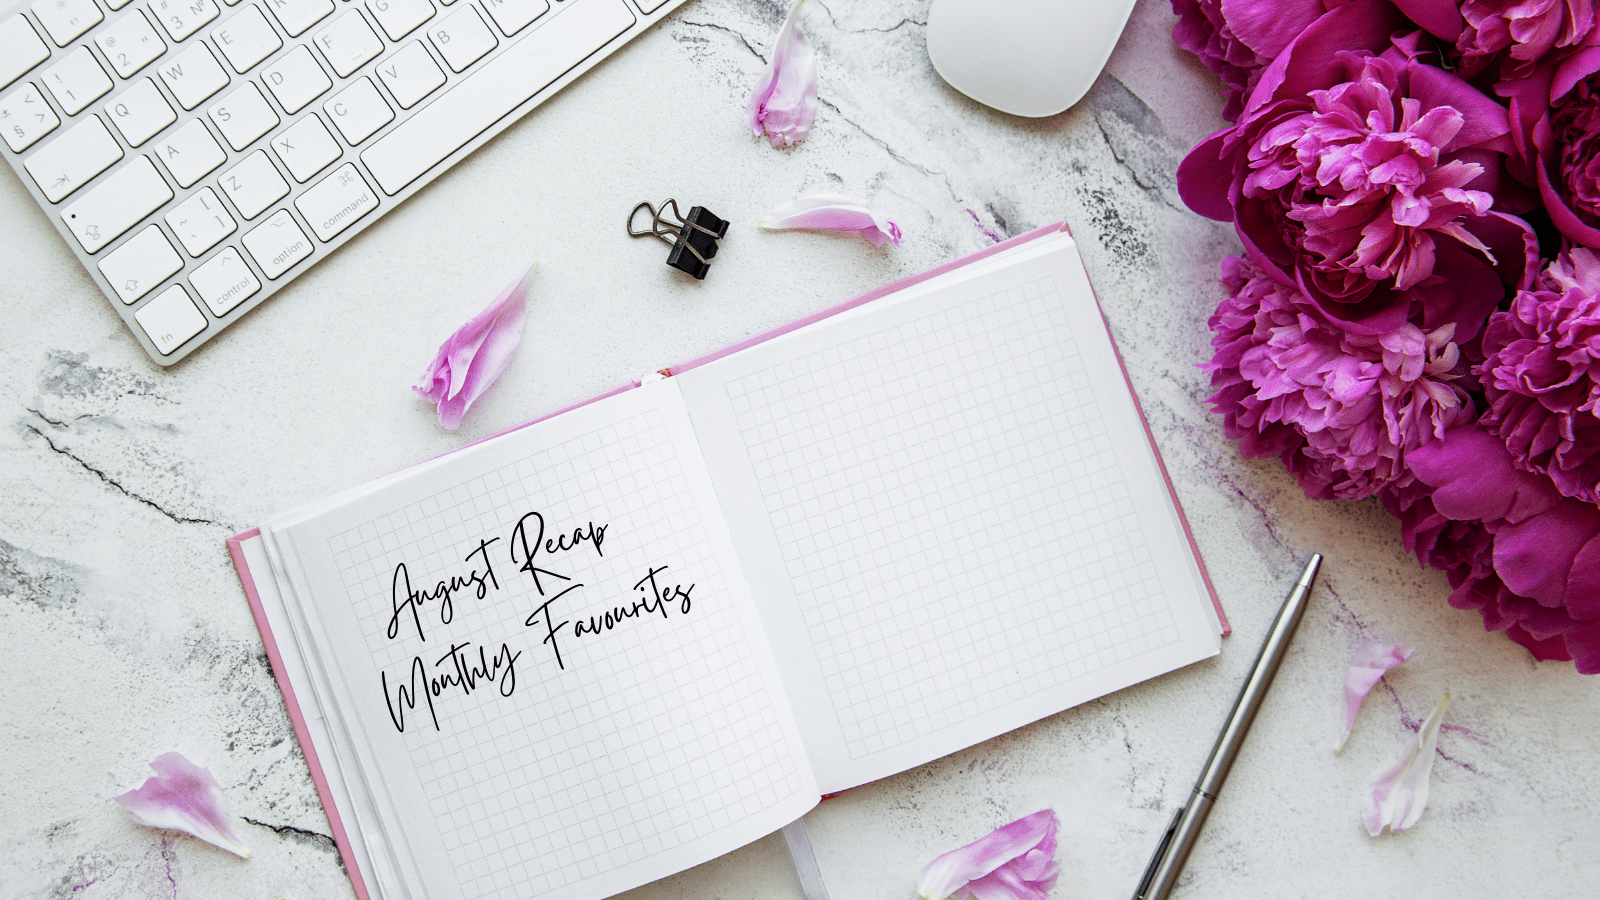 ! 1
@ 2
# 3 №
Q W E
A S D F G
Z X C V B
fn control option command
August Recap
Monthly Favourites